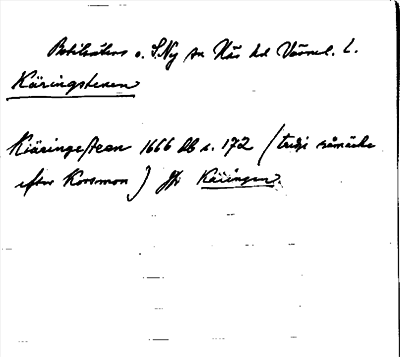 Botilsäter o. S.Ny sn Näs hd Värml. l.
Käringstenen
Kiäringesteen 1666 Db s. 172 (tredje råmärke
efter Korsmon) Jfr Käringen.